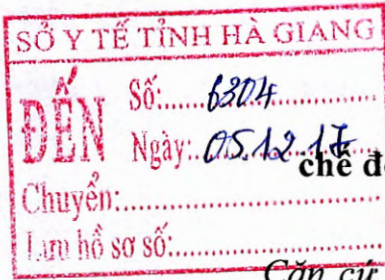 SỞ Y TẾ TỈNH HÀ GIANG
ĐẾN
Số:......6304
Ngày:..05.12.17
chế đ
Chuyển:.....................
Lưu hồ sơ số:...............
Căn cứ